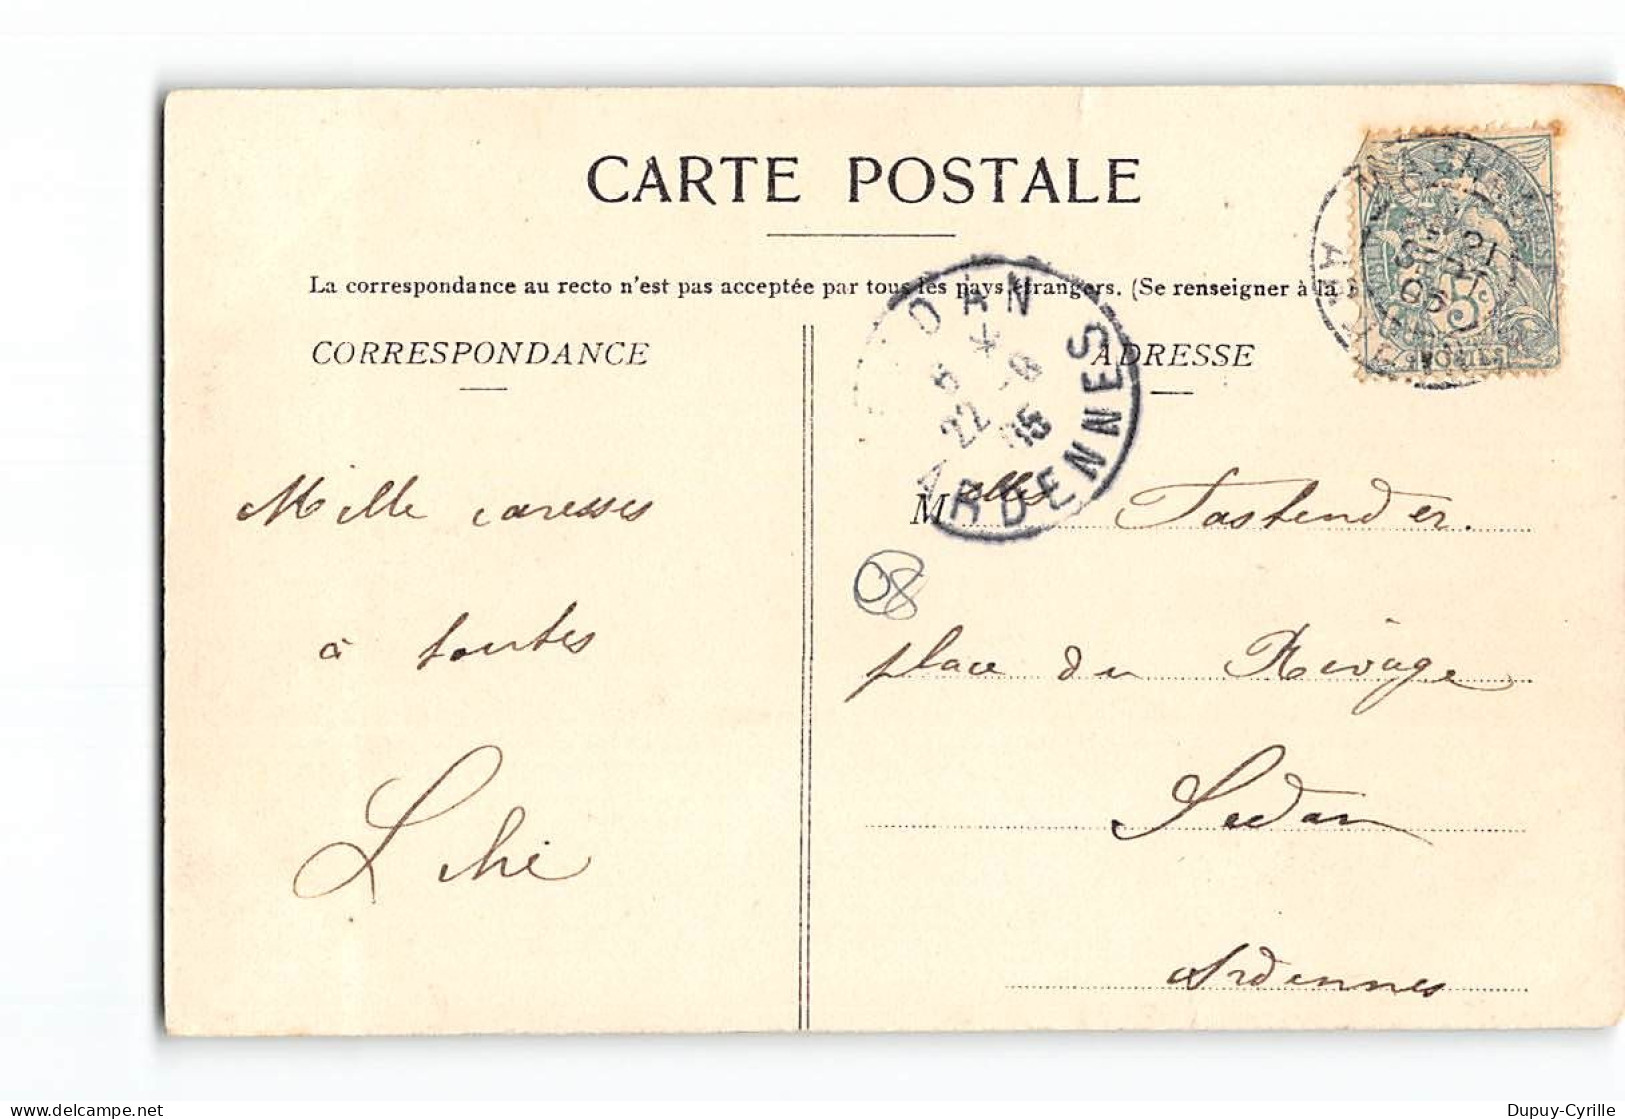 CARTE POSTALE
La correspondance au recto n'est pas acceptée par tous les pays étrangers. (Se renseigner à la
CORRESPONDANCE
ADRESSE
DAN
8 * 22 -9 05
ARDENNES
Mille caresses
à toutes
Lili
Melles Tastender.
08
place du Rivage
Sedan
Ardennes
delcampe.net
Dupuy-Cyrille